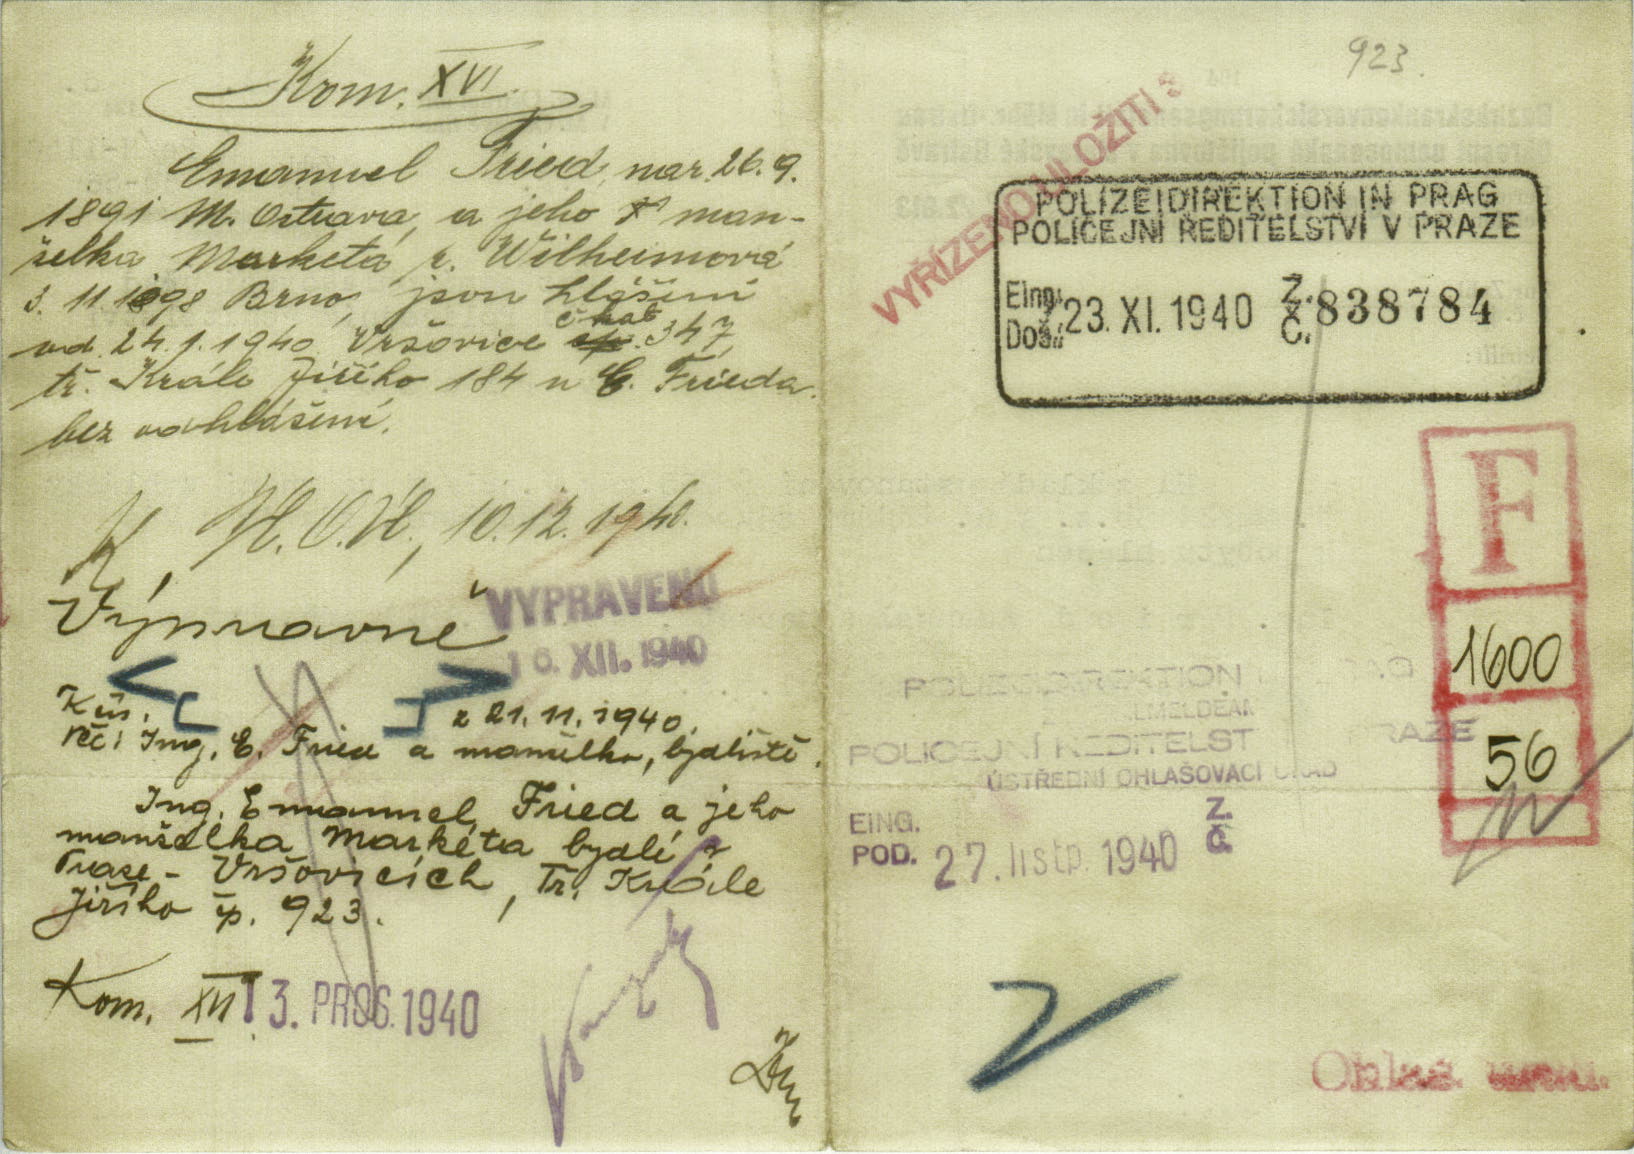 Kom. XVI.
Emanuel Fried, nar. 26.9.
1891 M. Ostrava, a jeho man-
želka Marketa r. Wilheimová
3. 11. 1898 Brno, jsou hlášeni
od 24.1.1940 Vršovice č kat 347,
tř. Krále Jiřího 184 u E. Frieda
bez odhlášení.
10.12.1940.
Výpravně
VYPRAVENO
16. XII. 1940
K čís. z 21.11.1940.
Věc: Ing. E. Fried a manželka, bydliště.
Ing. Emanuel Fried a jeho
manželka Markéta bydlí v
Praze - Vršovicích, Tř. Krále
Jiřího čp. 923.
Kom. XVI 13. PROS. 1940
923.
VYŘÍZENO ULOŽITI
POLIZEIDIREKTION IN PRAG
POLICEJNÍ ŘEDITELSTVÍ V PRAZE
Eing.: 23. XI. 1940 Z.: 838784
Doš.: Č.:
F
1600
56
POLIZEIDIREKTION
POLICEJNÍ ŘEDITELST PRAZE
ÚSTŘEDNÍ OHLAŠOVACÍ ÚŘAD
EING. Z.
POD. 27. listp. 1940 Č.
Ohlaš.